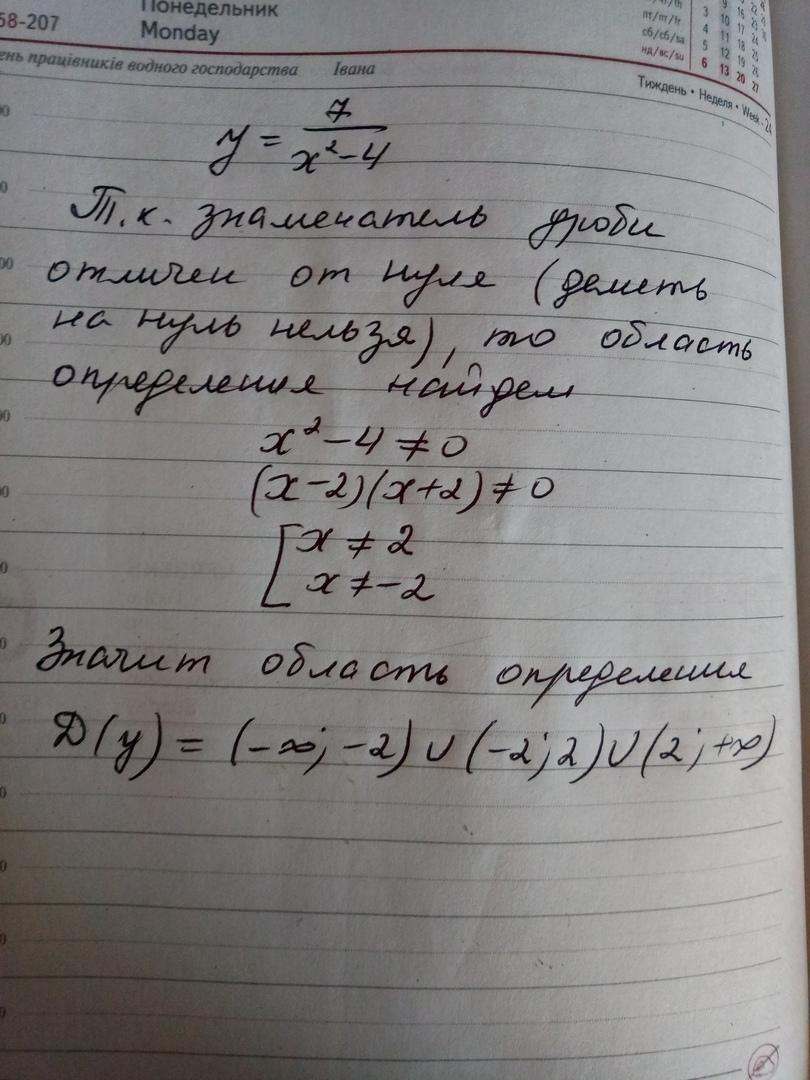 58-207
Понедельник
Monday
ень працівників водного господарства Івана
пт/пт/fr
сб/сб/sa
нд/вс/su
3 10 17 24
4 11 18 25
5 12 19 26
6 13 20 27
Тиждень • Неделя • Week - 24
y = 7/(x²-4)
Т.к. знаменатель дроби
отличен от нуля (делить
на нуль нельзя), то область
определения найдем
x²-4≠0
(x-2)(x+2)≠0
[x≠2
x≠-2
Значит область определения
D(y) = (-∞; -2)∪(-2; 2)∪(2; +∞)